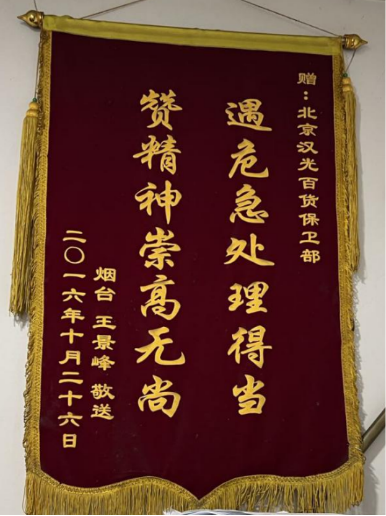 赠：北京汉光百货保卫部
遇危急处理得当
赞精神崇高无尚
烟台 王景峰 敬送
二〇一六年十月二十六日